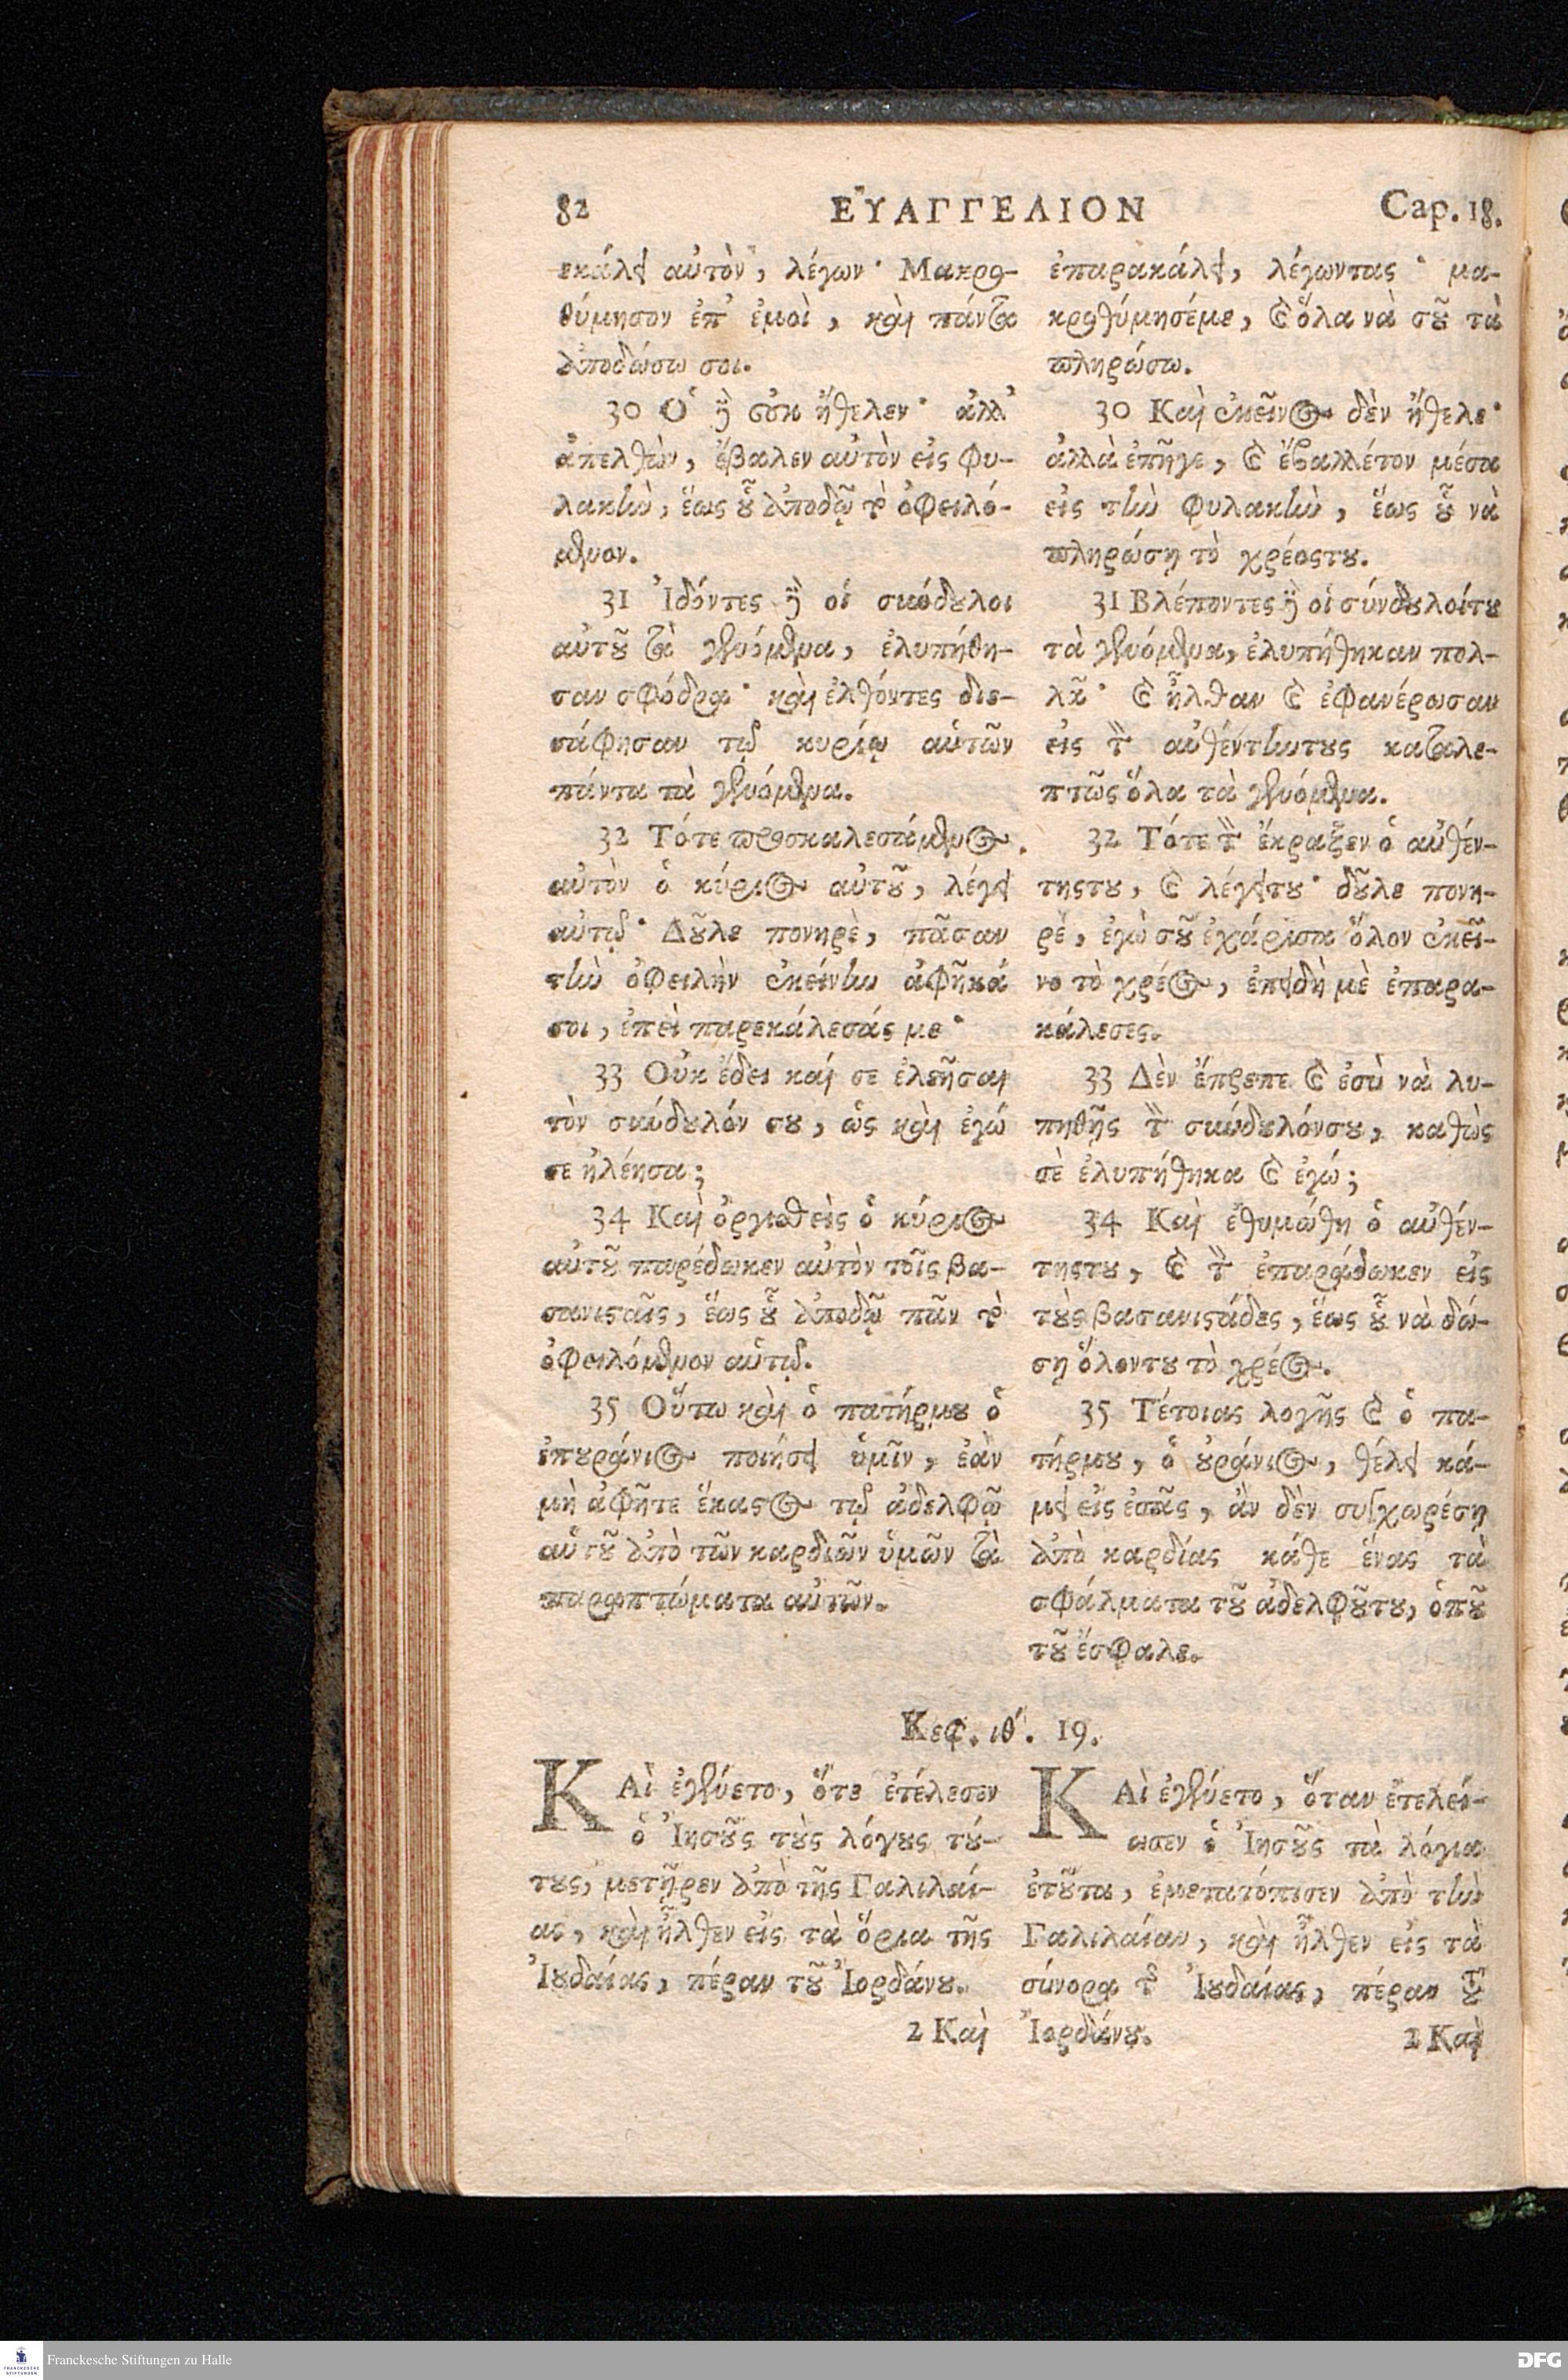 82 ΕΥ̓ΑΓΓΕΛΙΟΝ Cap. 18.
εκάλει αὐτὸν, λέγων· Μακρο-
θύμησον ἐπ' ἐμοὶ, καὶ πάντα
ἀποδώσω σοι.
30 Ὁ δὲ οὐκ ἤθελεν· ἀλλ'
ἀπελθὼν, ἔβαλεν αὐτὸν εἰς φυ-
λακὴν, ἕως οὗ ἀποδῷ τὸ ὀφειλό-
μενον.
31 Ἰδόντες δὲ οἱ σύνδουλοι
αὐτοῦ τὰ γενόμενα, ἐλυπήθη-
σαν σφόδρα· καὶ ἐλθόντες διε-
σάφησαν τῷ κυρίῳ αὑτῶν
πάντα τὰ γενόμενα.
32 Τότε προσκαλεσάμενος
αὐτὸν ὁ κύριος αὐτοῦ, λέγει
αὐτῷ· Δοῦλε πονηρὲ, πᾶσαν
τὴν ὀφειλὴν ἐκείνην ἀφῆκά
σοι, ἐπεὶ παρεκάλεσάς με·
33 Οὐκ ἔδει καί σε ἐλεῆσαι
τὸν σύνδουλόν σου, ὡς καὶ ἐγώ
σε ἠλέησα;
34 Καὶ ὀργισθεὶς ὁ κύριος
αὐτοῦ παρέδωκεν αὐτὸν τοῖς βα-
σανισταῖς, ἕως οὗ ἀποδῷ πᾶν τὸ
ὀφειλόμενον αὑτῷ.
35 Οὕτω καὶ ὁ πατήρμου ὁ
ἐπουράνιος ποιήσει ὑμῖν, ἐὰν
μὴ ἀφῆτε ἕκαστος τῷ ἀδελφῷ
αὑτοῦ ἀπὸ τῶν καρδιῶν ὑμῶν τὰ
παραπτώματα αὐτῶν.
ἐπαρακάλει, λέγωντας· μα-
κροθύμησέμε, καὶ ὅλα νὰ σοῦ τὰ
πληρώσω.
30 Καὶ ἐκεῖνος δὲν ἤθελε·
ἀλλὰ ἐπῆγε, καὶ ἔβαλλέτον μέσα
εἰς τὴν φυλακὴν, ἕως οὗ νὰ
πληρώσῃ τὸ χρέοςτου.
31 Βλέποντες δὲ οἱ σύνδουλοίτου
τὰ γενόμενα, ἐλυπήθηκαν πολ-
λὰ· καὶ ἦλθαν καὶ ἐφανέρωσαν
εἰς τὸν αὐθέντηντους καταλε-
πτῶς ὅλα τὰ γενόμενα.
32 Τότε τὸν ἔκραξεν ὁ αὐθέν-
τηςτου, καὶ λέγειτου· δοῦλε πονη-
ρέ, ἐγὼ σοῦ ἐχάρισα ὅλον ἐκεῖ-
νο τὸ χρέος, ἐπειδὴ μὲ ἐπαρα-
κάλεσες.
33 Δὲν ἔπρεπε καὶ ἐσὺ νὰ λυ-
πηθῇς τὸν σύνδουλόνσου, καθὼς
σὲ ἐλυπήθηκα καὶ ἐγώ;
34 Καὶ ἐθυμώθη ὁ αὐθέν-
τηςτου, καὶ τὸν ἐπαράδωκεν εἰς
τοὺς βασανιστάδες, ἕως οὗ νὰ δώ-
σῃ ὅλοντου τὸ χρέος.
35 Τέτοιας λογῆς καὶ ὁ πα-
τήρμου, ὁ οὐράνιος, θέλει κά-
μει εἰς ἐσᾶς, ἂν δὲν συγχωρέσῃ
ἀπὸ καρδίας κάθε ἕνας τὰ
σφάλματα τοῦ ἀδελφοῦτου, ὁποῦ
τοῦ ἔσφαλε.
Κεφ. ιθ'. 19.
ΚΑὶ ἐγένετο, ὅτε ἐτέλεσεν
ὁ Ἰησοῦς τοὺς λόγους τού-
τους, μετῆρεν ἀπὸ τῆς Γαλιλαί-
ας, καὶ ἦλθεν εἰς τὰ ὅρια τῆς
Ἰουδαίας, πέραν τοῦ Ἰορδάνου.
2 Καὶ
ΚΑὶ ἐγένετο, ὅταν ἐτελεί-
ωσεν ὁ Ἰησοῦς τὰ λόγια
ἐτοῦτα, ἐμετατόπισεν ἀπὸ τὴν
Γαλιλαίαν, καὶ ἦλθεν εἰς τὰ
σύνορα τῆς Ἰουδαίας, πέραν τοῦ
Ἰορδάνου.
2 Καὶ
FRANCKESCHE STIFTUNGEN
Franckesche Stiftungen zu Halle
DFG